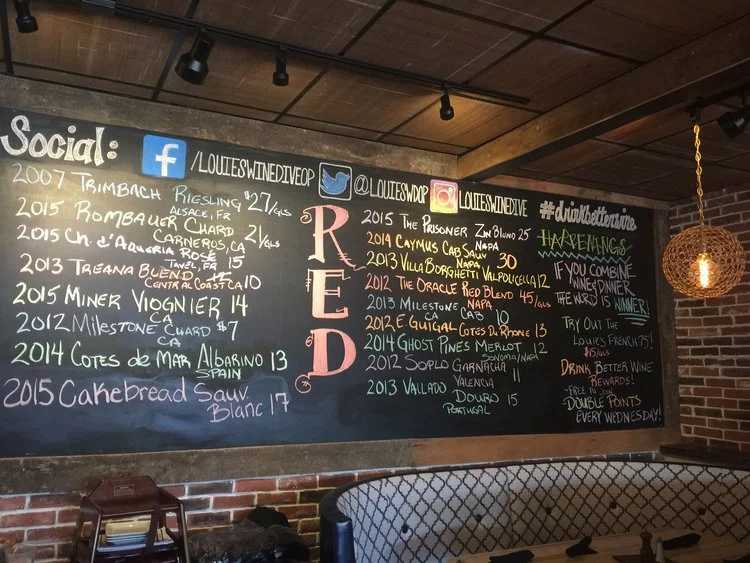 Social:
f /LOUIESWINEDIVEOP @LOUIESWDOP LOUIESWINEDIVE
2007 TRIMBACH RIESLING $27/GLS
ALSACE, FR
2015 ROMBAUER CHARD 21/GLS
CARNEROS, CA
2015 CH. d'AQUERIA ROSÉ 15
TAVEL, FR
2013 TREANA BLEND 10
CENTRAL COAST CA
2015 MINER VIOGNIER 14
CA
2012 MILESTONE CHARD $7
CA
2014 COTES de MAR ALBARINO 13
SPAIN
2015 Cakebread Sauv
Blanc 17
RED
2015 THE PRISONER ZIN BLEND 25
NAPA
2014 CAYMUS CAB SAUV 30
NAPA
2013 VILLA BORGHETTI VALPOLICELLA 12
2012 THE ORACLE RED BLEND 45/GLS
NAPA
2013 MILESTONE CAB 10
CA
2012 E GUIGAL COTES DE RHONE 13
2014 GHOST PINES MERLOT 12
SONOMA/NAPA
2012 SOPLO GARNACHA 11
VALENCIA
2013 VALLADO DOURO 15
PORTUGAL
#drinkbetterwine
HAPPENINGS
IF YOU COMBINE
WINE & DINNER
THE WORD IS WINNER!
TRY OUT THE
LOUIES FRENCH 75!
$15/GLS
DRINK BETTER WINE
REWARDS!
-FREE TO JOIN
DOUBLE POINTS
EVERY WEDNESDAY!